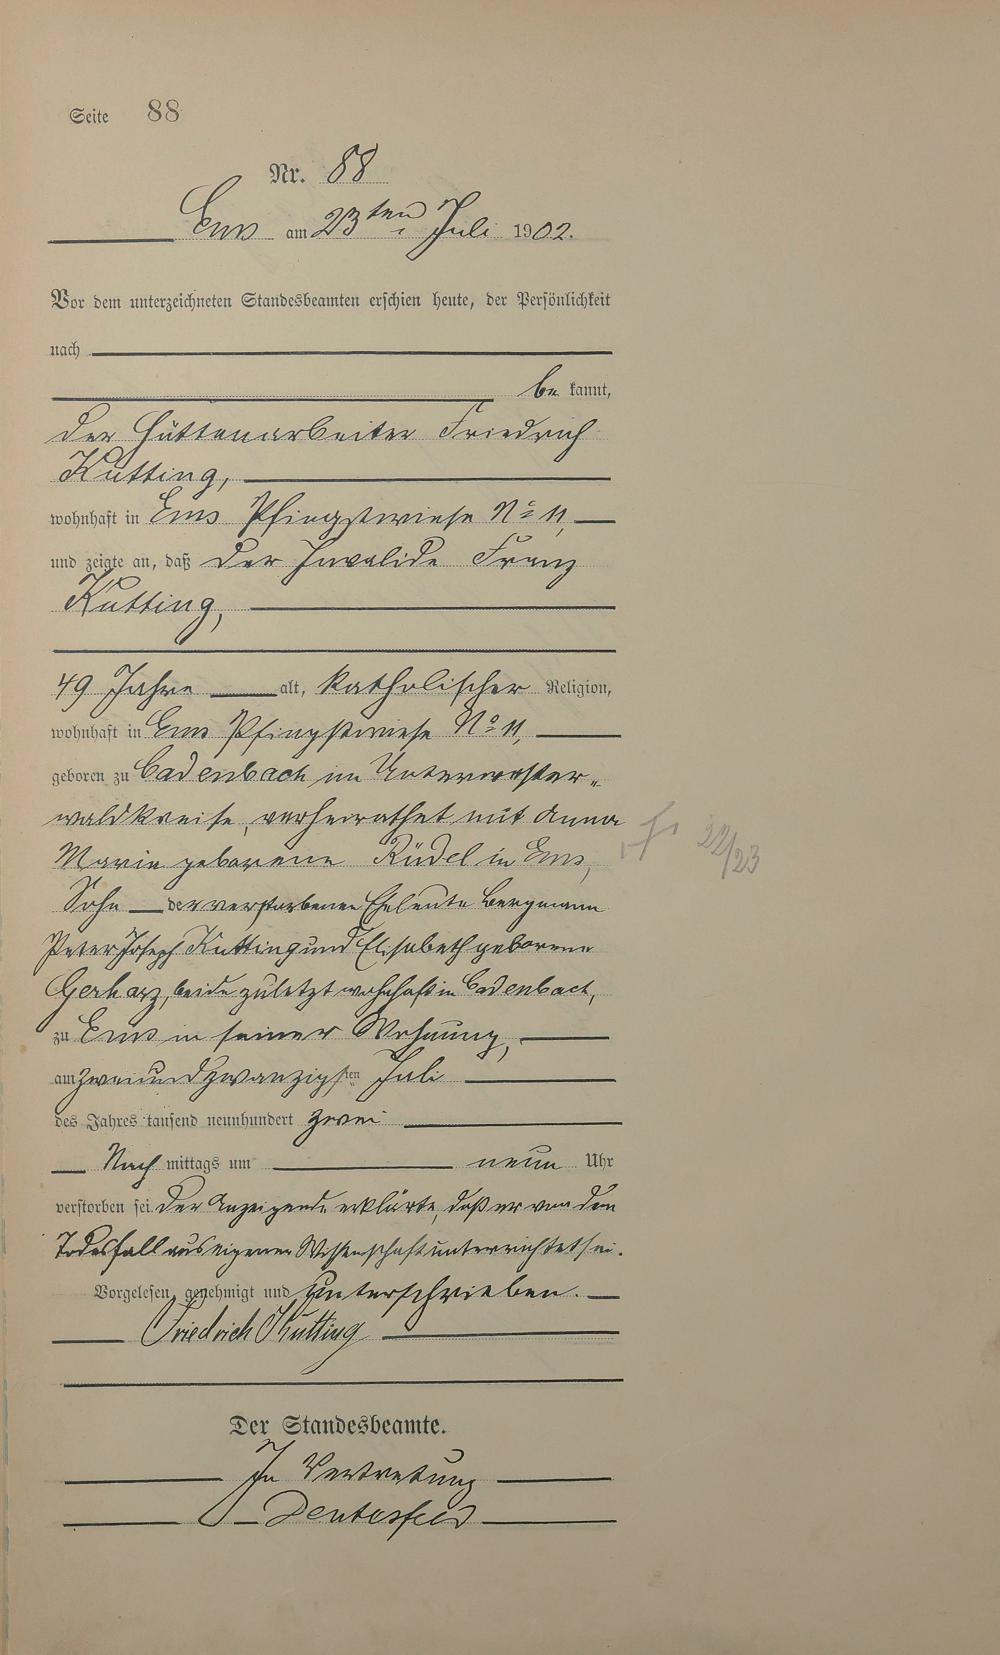 Seite 88
Nr. 88
Ems am 23ten Juli 1902.
Vor dem unterzeichneten Standesbeamten erschien heute, der Persönlichkeit
nach
be kannt,
der Hüttenarbeiter Friedrich
Kutting,
wohnhaft in Ems Pfingstwiese No 11,
und zeigte an, daß der Invalide Franz
Kutting,
49 Jahre alt, katholischer Religion,
wohnhaft in Ems Pfingstwiese No 11,
geboren zu Cadenbach im Unterwester-
waldkreise, verheirathet mit Anna
Maria geborene Rüdel in Ems,
Sohn der verstorbenen Eheleute Bergmann
Peter Joseph Kutting und Elisabeth geborene
Gerharz, beide zuletzt wohnhaft in Cadenbach,
zu Ems in seiner Wohnung,
am zweiundzwanzigsten Juli
des Jahres tausend neunhundert zwei
Nach mittags um neun Uhr
verstorben sei. Der Anzeigende erklärte, daß er von dem
Todesfall aus eigener Wissenschaft unterrichtet sei.
Vorgelesen, genehmigt und unterschrieben.
Friedrich Kutting
Der Standesbeamte.
In Vertretung
22/23